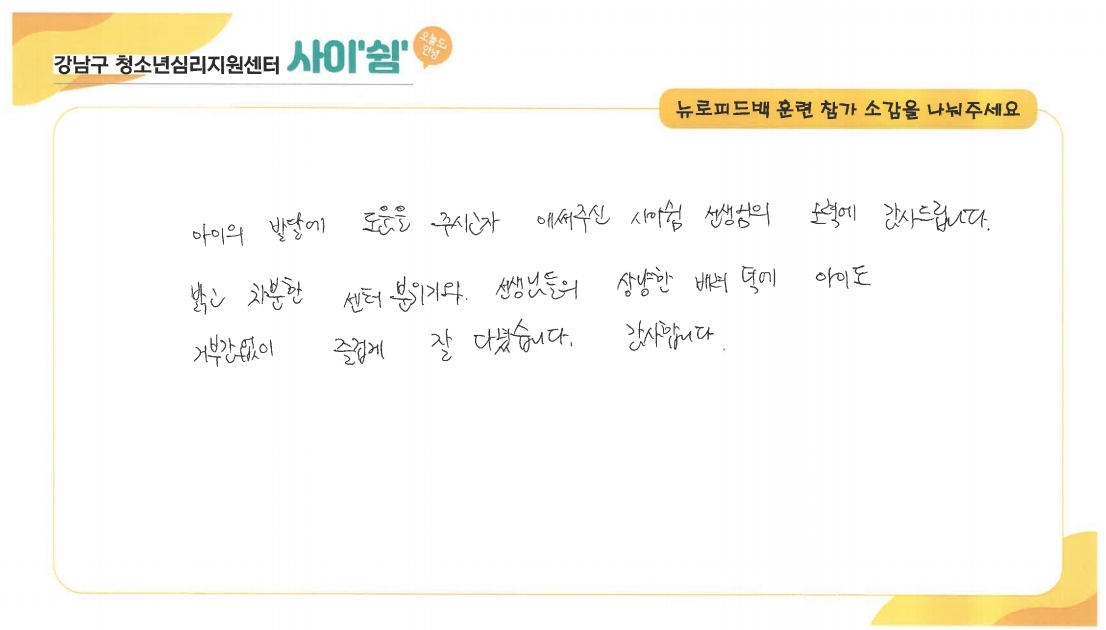 강남구 청소년심리지원센터 사이'쉼' 오늘도, 안녕
뉴로피드백 훈련 참가 소감을 나눠주세요
아이의 발달에 도움을 주시고자 애써주신 사이쉼 선생님의 노력에 감사드립니다.
밝고 차분한 센터 분위기와. 선생님들의 상냥한 배려 덕에 아이도
거부감없이 즐겁게 잘 다녔습니다. 감사합니다.